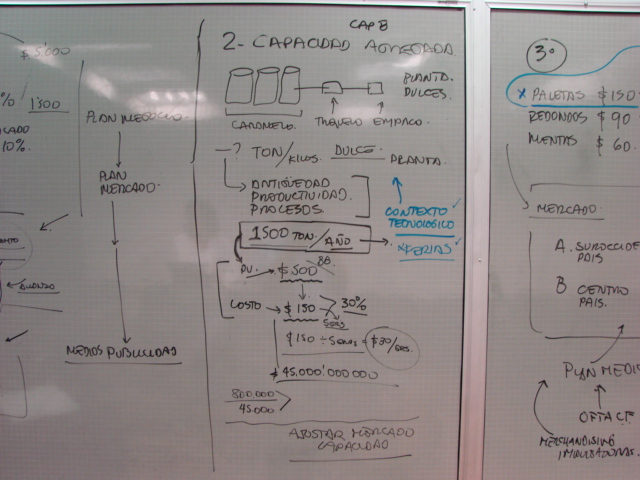 $5.000
%/1300
10%.
PLAN NEGOCIO.
PLAN
MERCADO.
MEDIOS PUBLICIDAD
CAP 8
2- CAPACIDAD AGREGADA.
PLANTA.
DULCES.
CARAMELO. TROQUELO EMPACO.
? TON/KILOS. DULCE PLANTA.
ANTIGÜEDAD
PRODUCTIVIDAD.
PROCESOS
CONTEXTO
TECNOLOGICO
FERIAS
1500 TON./AÑO
PV. $500
COSTO $150 30%
5GRS
$150 ÷ 5GRS = $30/GRS.
$45.000'000000
800.000
45.000
AJUSTAR MERCADO
CAPACIDAD
3°
X PALETAS $150
REDONDOS $90
MENTAS $60.
MERCADO.
A. SUROCCIDE
PAIS
B CENTRO
PAIS.
PLAN MEDI
MERCHANDISING
IMPULSADORAS.